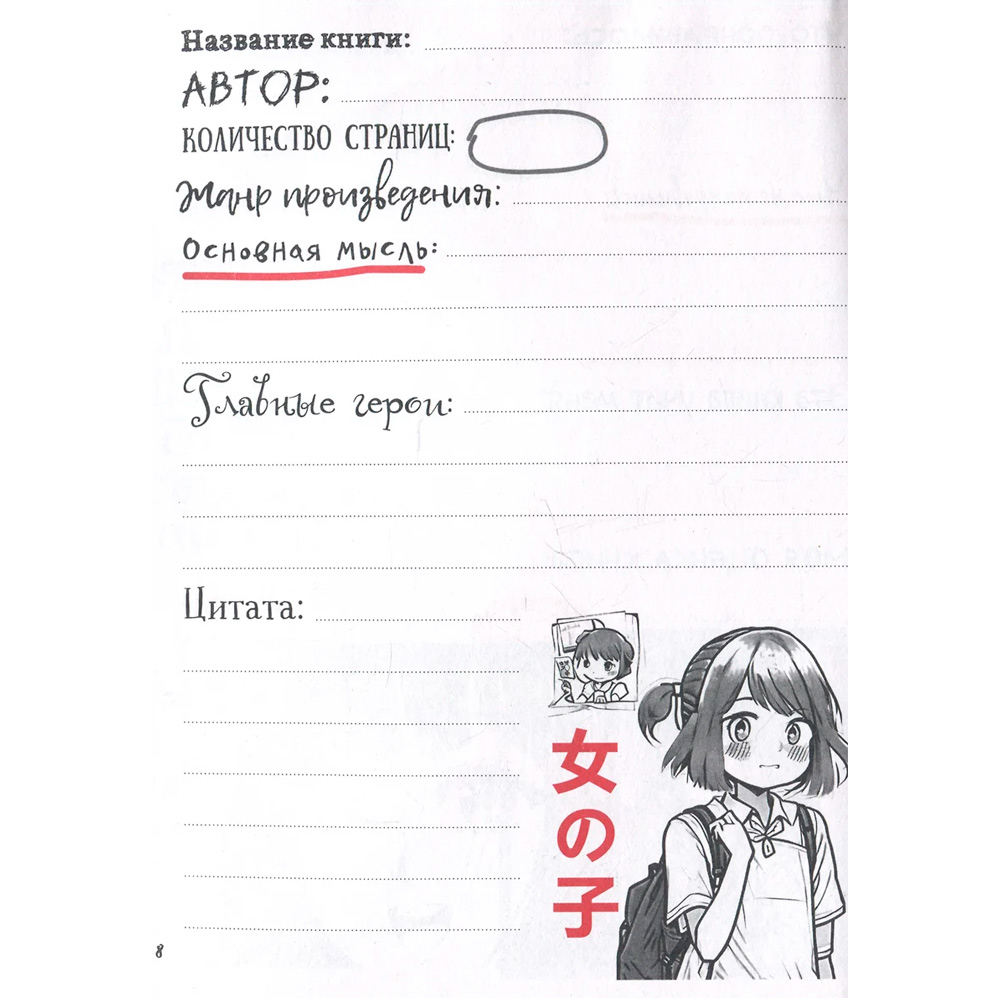 Название книги:
АВТОР:
КОЛИЧЕСТВО СТРАНИЦ:
Жанр произведения:
Основная мысль:
Главные герои:
Цитата:
女の子
8